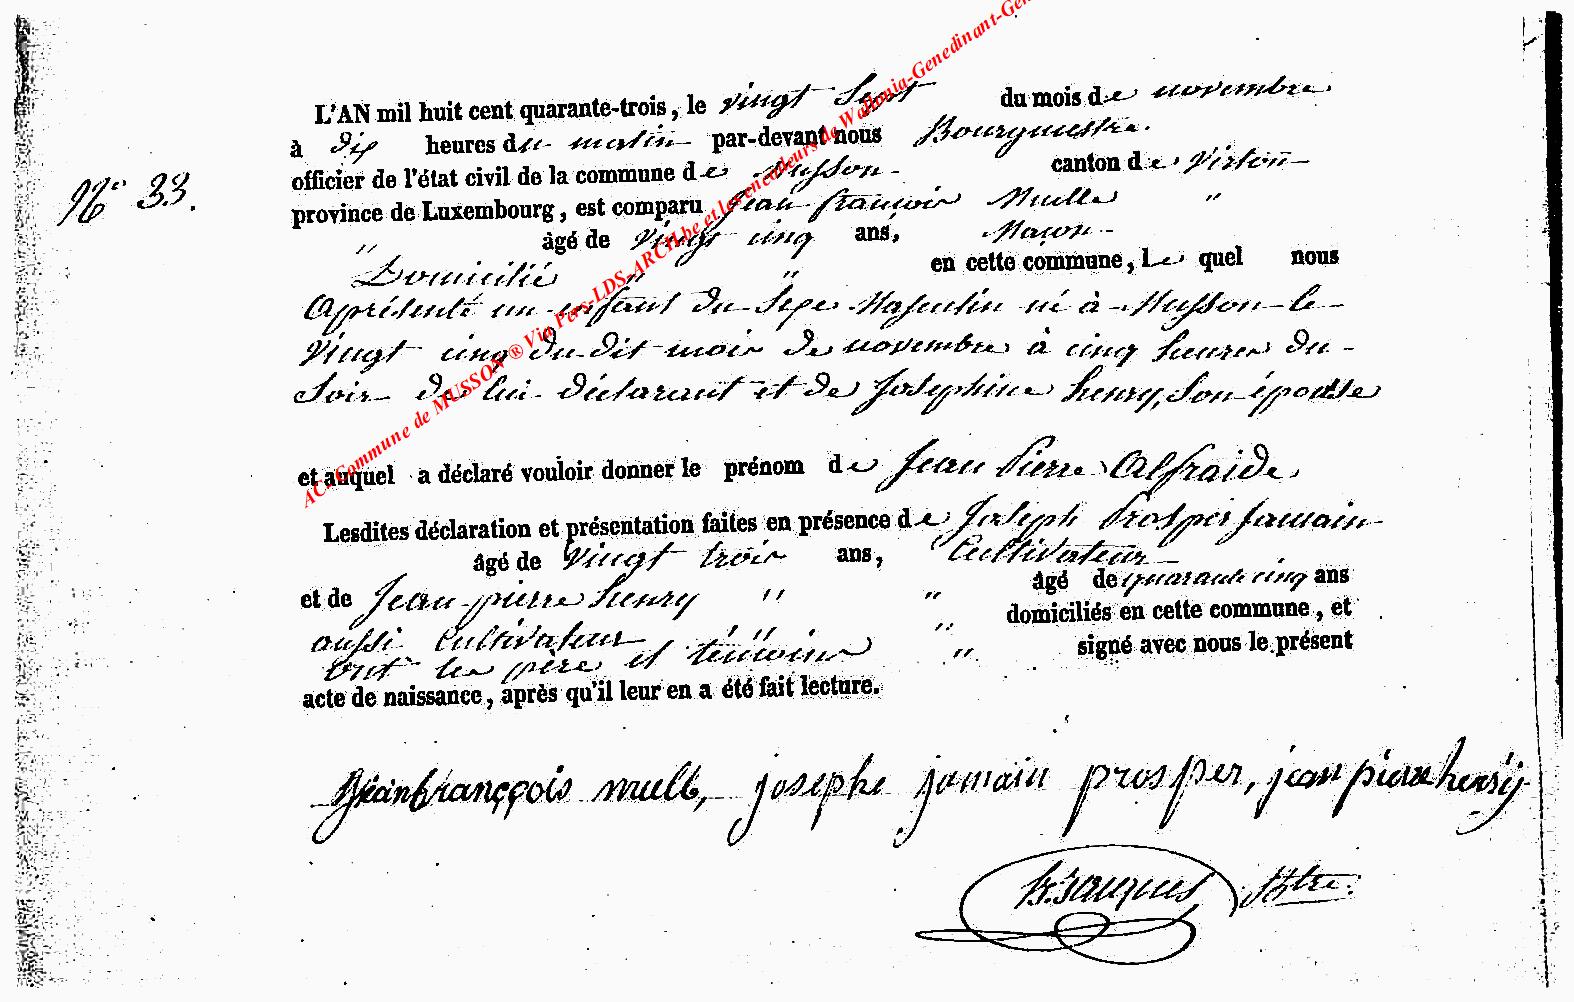 L'AN mil huit cent quarante-trois, le vingt Sept du mois de novembre
à dix heures du matin par-devant nous Bourgmestre.
officier de l'état civil de la commune de Musson canton de Virton
N° 33.
province de Luxembourg, est comparu Jean françois Mulle "
" âgé de Vingt cinq ans, Maçon
Domicilié " " en cette commune, le quel nous
a présenté un enfant du Sexe Masculin né à Musson le
Vingt cinq du dit mois de novembre à cinq heures du
Soir de lui déclarant et de Joséphine henry, Son épouse
et auquel a déclaré vouloir donner le prénom de Jean Pierre Alfraide.
Lesdites déclaration et présentation faites en présence de Joseph Prosper Jamain
âgé de Vingt trois ans, Cultivateur
et de Jean-pierre henry " " âgé de quarante cinq ans
aussi Cultivateur " " domiciliés en cette commune, et
ont les père et témoins " signé avec nous le présent
acte de naissance, après qu'il leur en a été fait lecture.
jeanfrançcois mull, josephe jamain prosper, jean pierre henry
Jacques Btre.
AC-Commune de MUSSON ® Via Pers-LDS-ARCH.be et les encodeurs de Wallonia-Genedinant-Gen